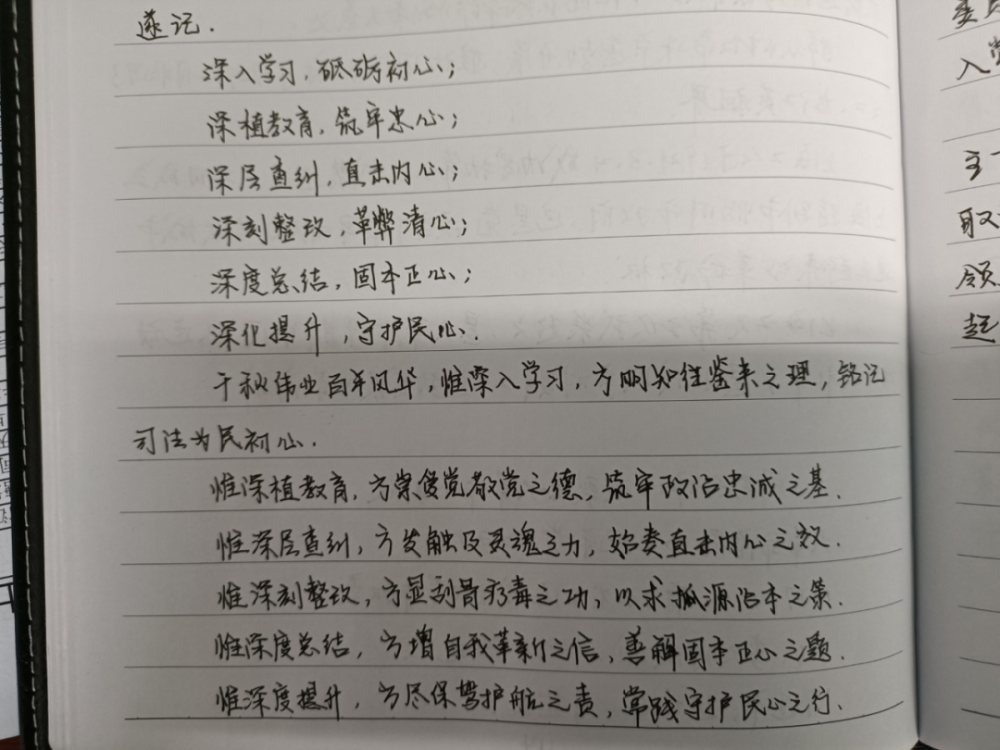 速记.
深入学习,砥砺初心;
深植教育,筑牢忠心;
深层查纠,直击内心;
深刻整改,革弊清心;
深度总结,固本正心;
深化提升,守护民心.
千秋伟业百年风华,惟深入学习,方明知往鉴来之理,铭记
司法为民初心.
惟深植教育,方崇爱党敬党之德,筑牢政治忠诚之基.
惟深层查纠,方发触及灵魂之力,始奏直击内心之效.
惟深刻整改,方显刮骨疗毒之功,以求抓源治本之策.
惟深度总结,方增自我革新之信,善解固本正心之题.
惟深度提升,方尽保驾护航之责,常践守护民心之行.
委员
入党
主
取
领
起